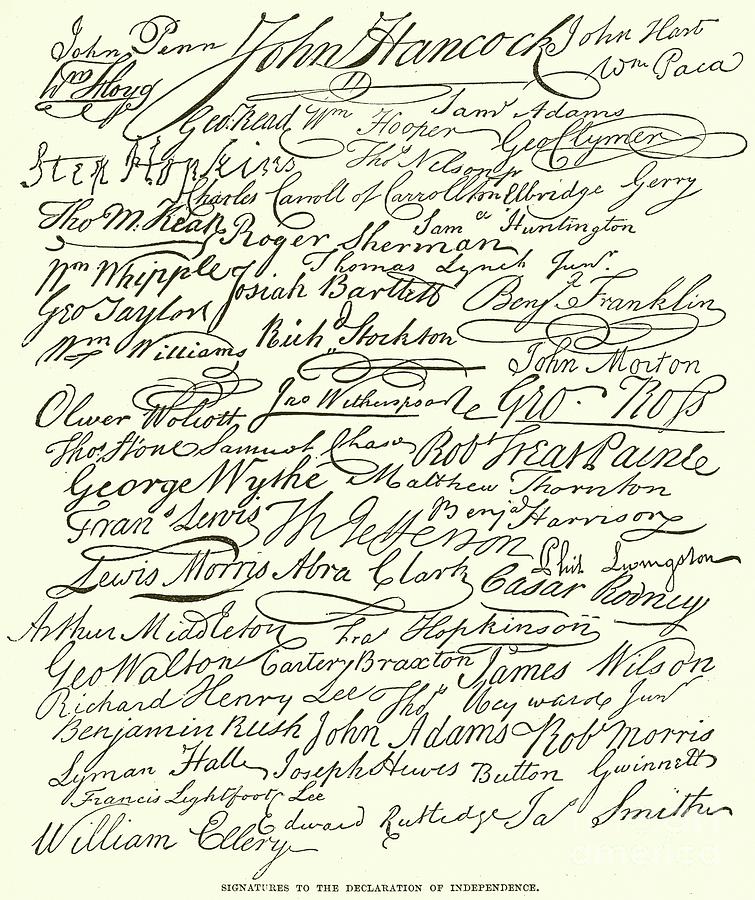 John Penn John Hancock John Hart
Wm Floyd Wm Paca
Geo. Read Wm Hooper Saml Adams Geo Clymer
Step Hopkins Thos Nelson jr
Charles Carroll of Carrollton Elbridge Gerry
Tho M. Kean Roger Sherman Saml Huntington
Wm Whipple Josiah Bartlett Thomas Lynch Junr.
Geo Taylor Benja Franklin
Wm Williams Richd Stockton John Morton
Oliver Wolcott Jno Witherspoon Geo. Ross
Thos Stone Samuel Chase Robt Treat Paine
George Wythe Matthew Thornton
Frans Lewis Th Jefferson Benja Harrison
Lewis Morris Abra Clark Phil. Livingston
Cæsar Rodney
Arthur Middleton Fras Hopkinson
Geo Walton Carter Braxton James Wilson
Richard Henry Lee Thos Heyward Junr
Benjamin Rush John Adams Robt Morris
Lyman Hall Joseph Hewes Button Gwinnett
Francis Lightfoot Lee
William Ellery Edward Rutledge Jas Smith
SIGNATURES TO THE DECLARATION OF INDEPENDENCE.